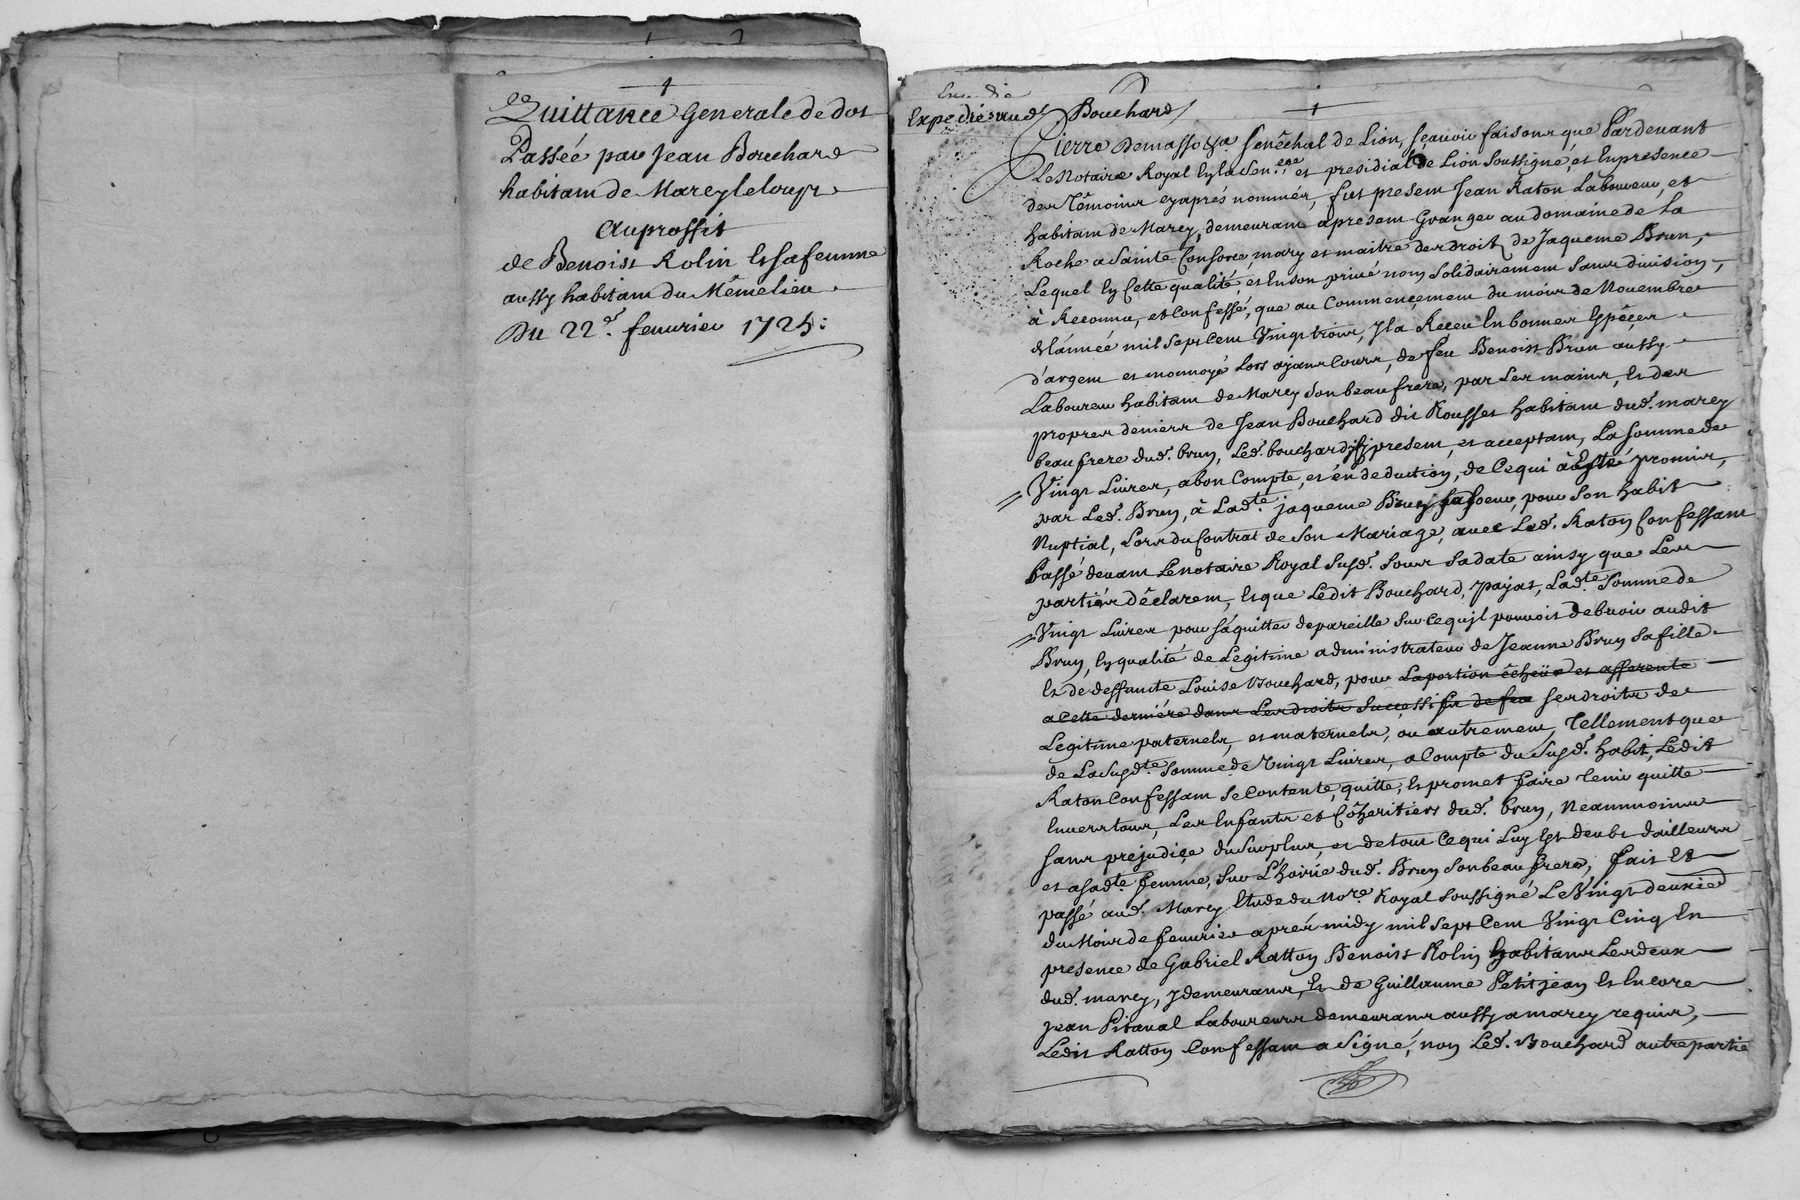 Quittance Generale de dot
Passée par Jean Bouchard
habitant de Marcy le loup
Au proffit
de Benoist Rolin Et sa femme
aussy habitant du Même lieu
Du 22e. feuurier 1725:
Expedié aud. Bouchard
Pierre Demasso &a. Senêchal de Lion, sçauoir faisons que Pardeuant
Le Notaire Royal En la Sen.ée et presidial de Lion soussigné, et En presence
des Têmoins cy aprés nommés, fut present Jean Raton Laboureur, et
habitant de Marcy, demeurant apresent Granger au domaine de la
Roche a Sainte Consorce, mary et maitre des droits de Jaqueme Brun,
Lequel En Cette qualité, et En son priué nom solidairement sans diuision,
à Reconnu, et Confessé, que au Commençement du mois de Nouembre
de L'année mil Sept Cent Vingt trois, Il a Receu En bonnes Espêçes
d'argent et monnoye Lors ayant Cours, de feu Benoist Brun aussy
Laboureur habitant de Marcy Son beau frere, par Les mains, Et des
propres deniers de Jean Bouchard dit Rousset habitant dud. marcy
beau frere dud. brun, Led. bouchard present, et acceptant, La Somme de
Vingt Liures, a bon Compte, et en deduction, de Ce qui à Esté promis,
par Led. Brun, à Ladte. jaqueme Brun sa soeur, pour Son habit
Nuptial, Lors du Contrat de Son Mariage, auec Led. Raton Confessant
Passé deuant Le notaire Royal Susd. Sous Sa date ainsy que Les
partiés Déclarent, Et que Ledit Bouchard, payat, Ladte. Somme de
Vingt Liures pour S'áquitter de pareille Sur Ce qu'il pouuoit debuoir audit
Brun, En qualité de Legitime administrateur de Jeanne Brun Sa fille
Et de deffunte Louise Bouchard, pour La portion écheüe et afferente
a Cette derniére dans Les droits Successifs de feu Ses droits de
Legitime paternels, et maternels, ou autrement, Tellement que
de La Susdte. Somme de Vingt Liures, a Compte du Susd. habit, Ledit
Raton Confessant Se Contente, quitte, Et promet faire Tenir quitte
Enuers tous, Les Enfants et Cohêritiers dud. brun, Neanmoins
Sans préjudiçe du Surplus, et de tout Ce qui Luy Est deubt d'ailleurs
et a Sadte. femme, Sur L'hoirie dud. Brun Son beau frere, fait Et
passé aud. Marcy Etude du Nore. Royal Soussigné Le Vingt deuxie
du Mois de feuurier aprés midy mil Sept Cent Vingt Cinq En
presence de Gabriel Ratton Benoist Rolin habitans Les deux
dud. marcy, y demeurans, Et de Guillaume Petitjean Et Encore
Jean Pitaual Laboureurs demeurans aussy a marcy requis,
Ledit Ratton Confessant a Signé, non Led. Bouchard autre partie